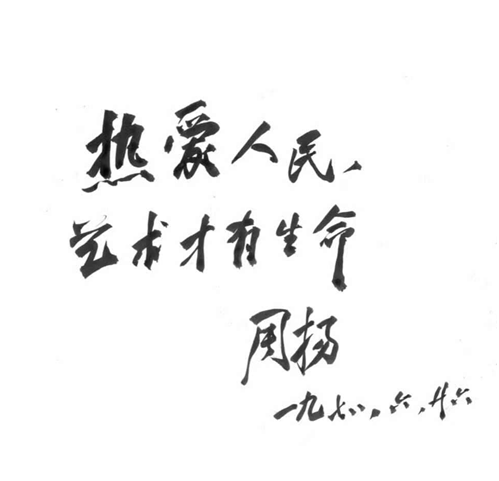 热爱人民、
艺术才有生命
周扬
一九七八,六,廿六